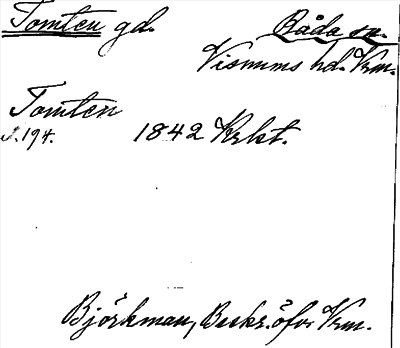 Tomten gd. Råda sn.
Visnums hd. Vrm.
Tomten
s. 194. 1842 Krkt.
Björkman, Beskr. öfver Vrm.